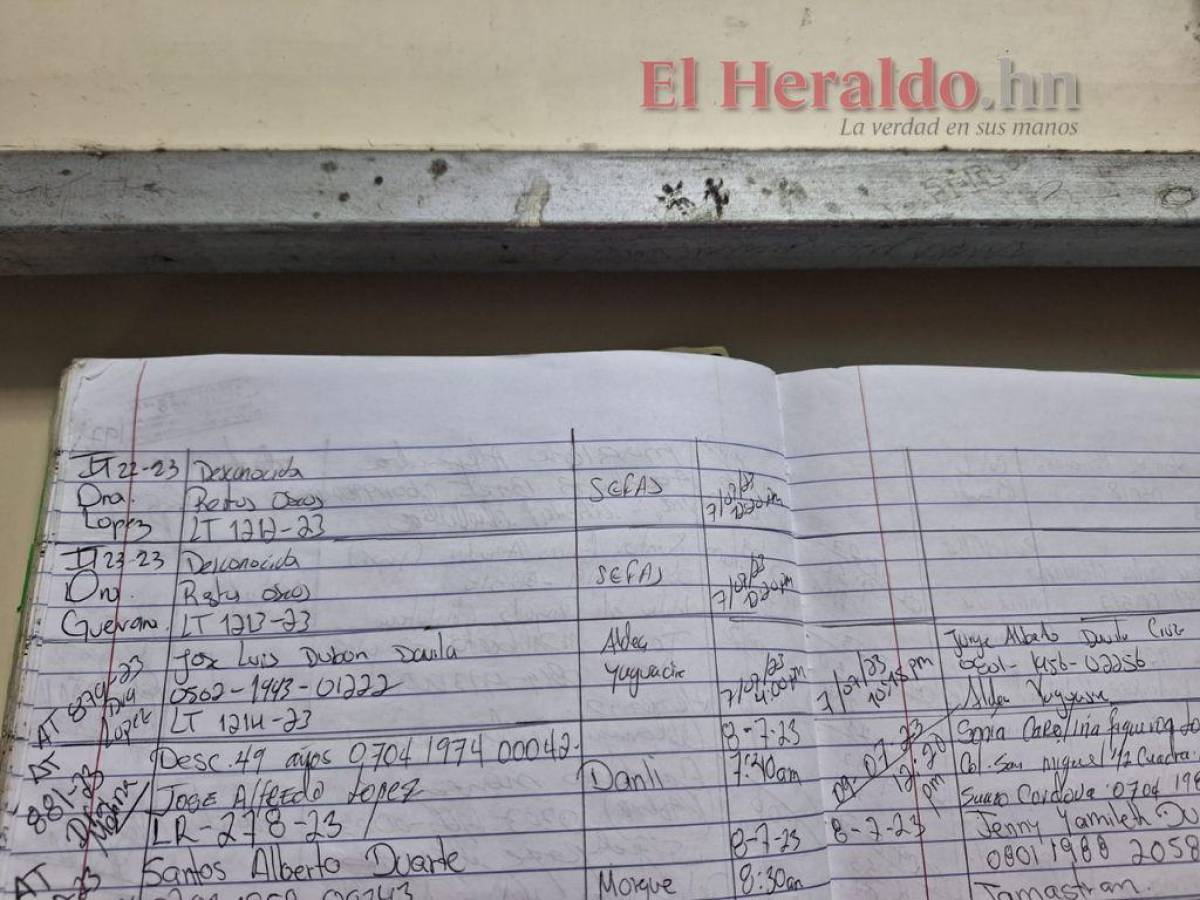 El Heraldo.hn
La verdad en sus manos
IT 22-23 Desconocida
Dra. Restos Oseos SEFAS 7/07/23
Lopez LT 1212-23
IT 23-23 Desconocida
Dra. Restos oseos SEFAS 7/07/23
Guevara LT 1213-23
Jose Luis Dubon Davila Aldea Jorge Alberto Davila Cruz
AT 879-23 0502-1943-01222 7/07/23 4:00pm 7/07/23 10:18 pm 0501-1956-02256
Dra Lopez LT 1214-23 Aldea
Desc. 49 años 0704 1974 00042. 8-7-23 09-07-23 Sonia Carolina Figueroa
AT 881-23 Jose Alfredo Lopez Danli 7:30am 12:20 pm Col. San Miguel 1/2 Cuadra
LR-278-23 Cordova 0704 198
Santos Alberto Duarte 8-7-23 8-7-23 Jenny Yamileth Du
AT Morgue 8:30am 0801 1988 2058
Jamastran.